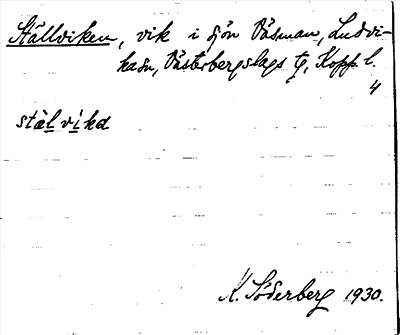 Ställviken, vik i sjön Väsman, Ludvi-
kasn, Västerbergslags tg, Kopp. l.
4
stàlvìka
K. Söderberg 1930.